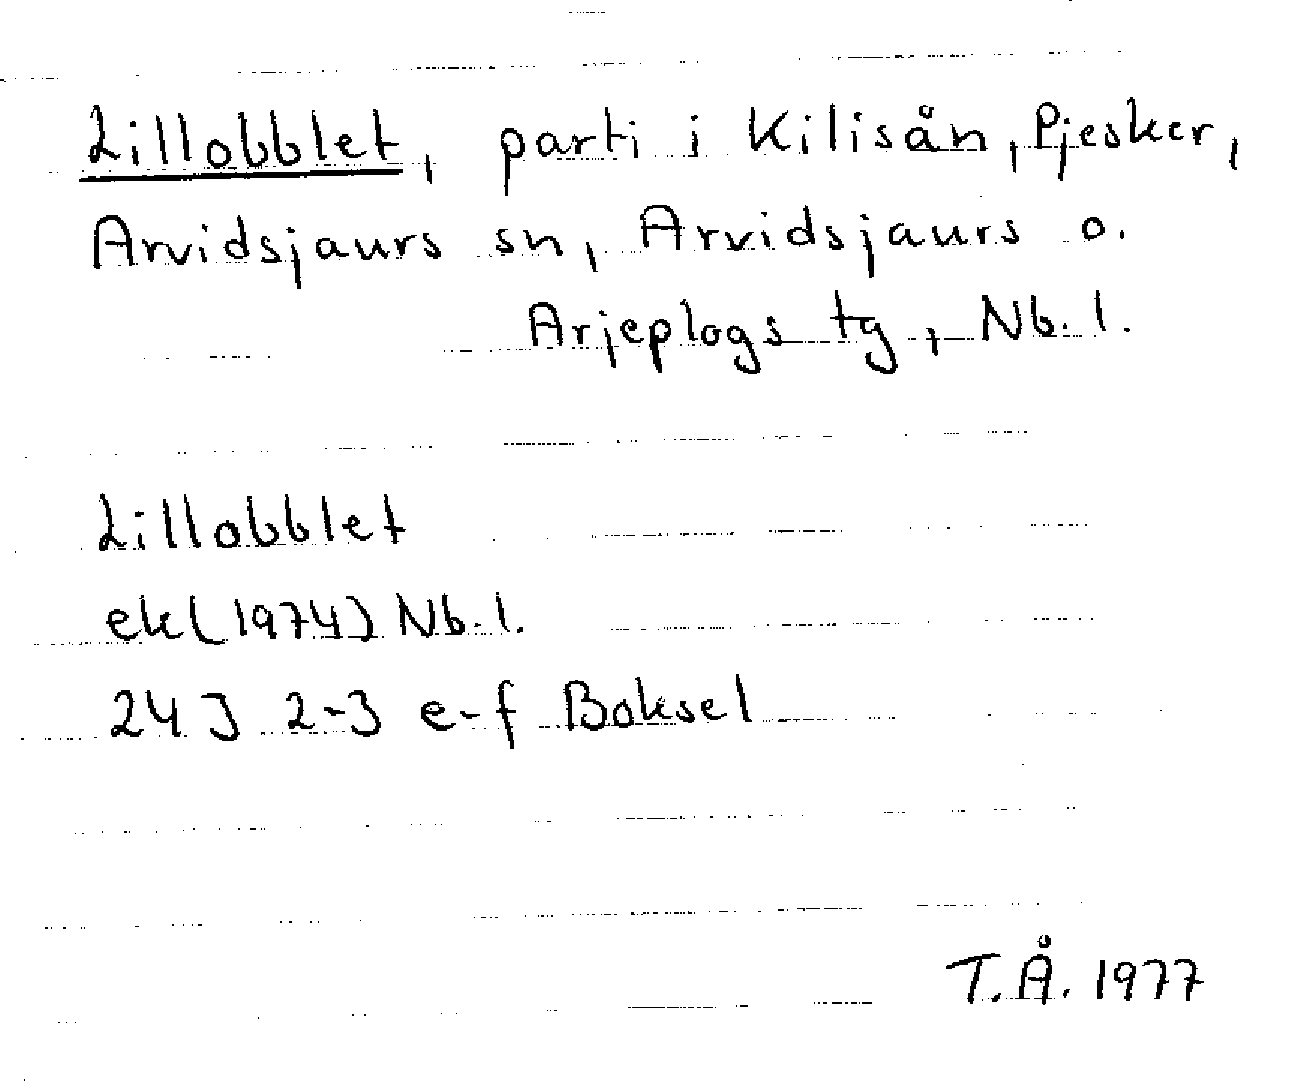 Lillobblet, parti i Kilisån, Pjesker,
Arvidsjaurs sn, Arvidsjaurs o.
Arjeplogs tg, Nb. l.
Lillobblet
ek (1974) Nb. l.
24 J 2-3 e-f Boksel
T. Å. 1977